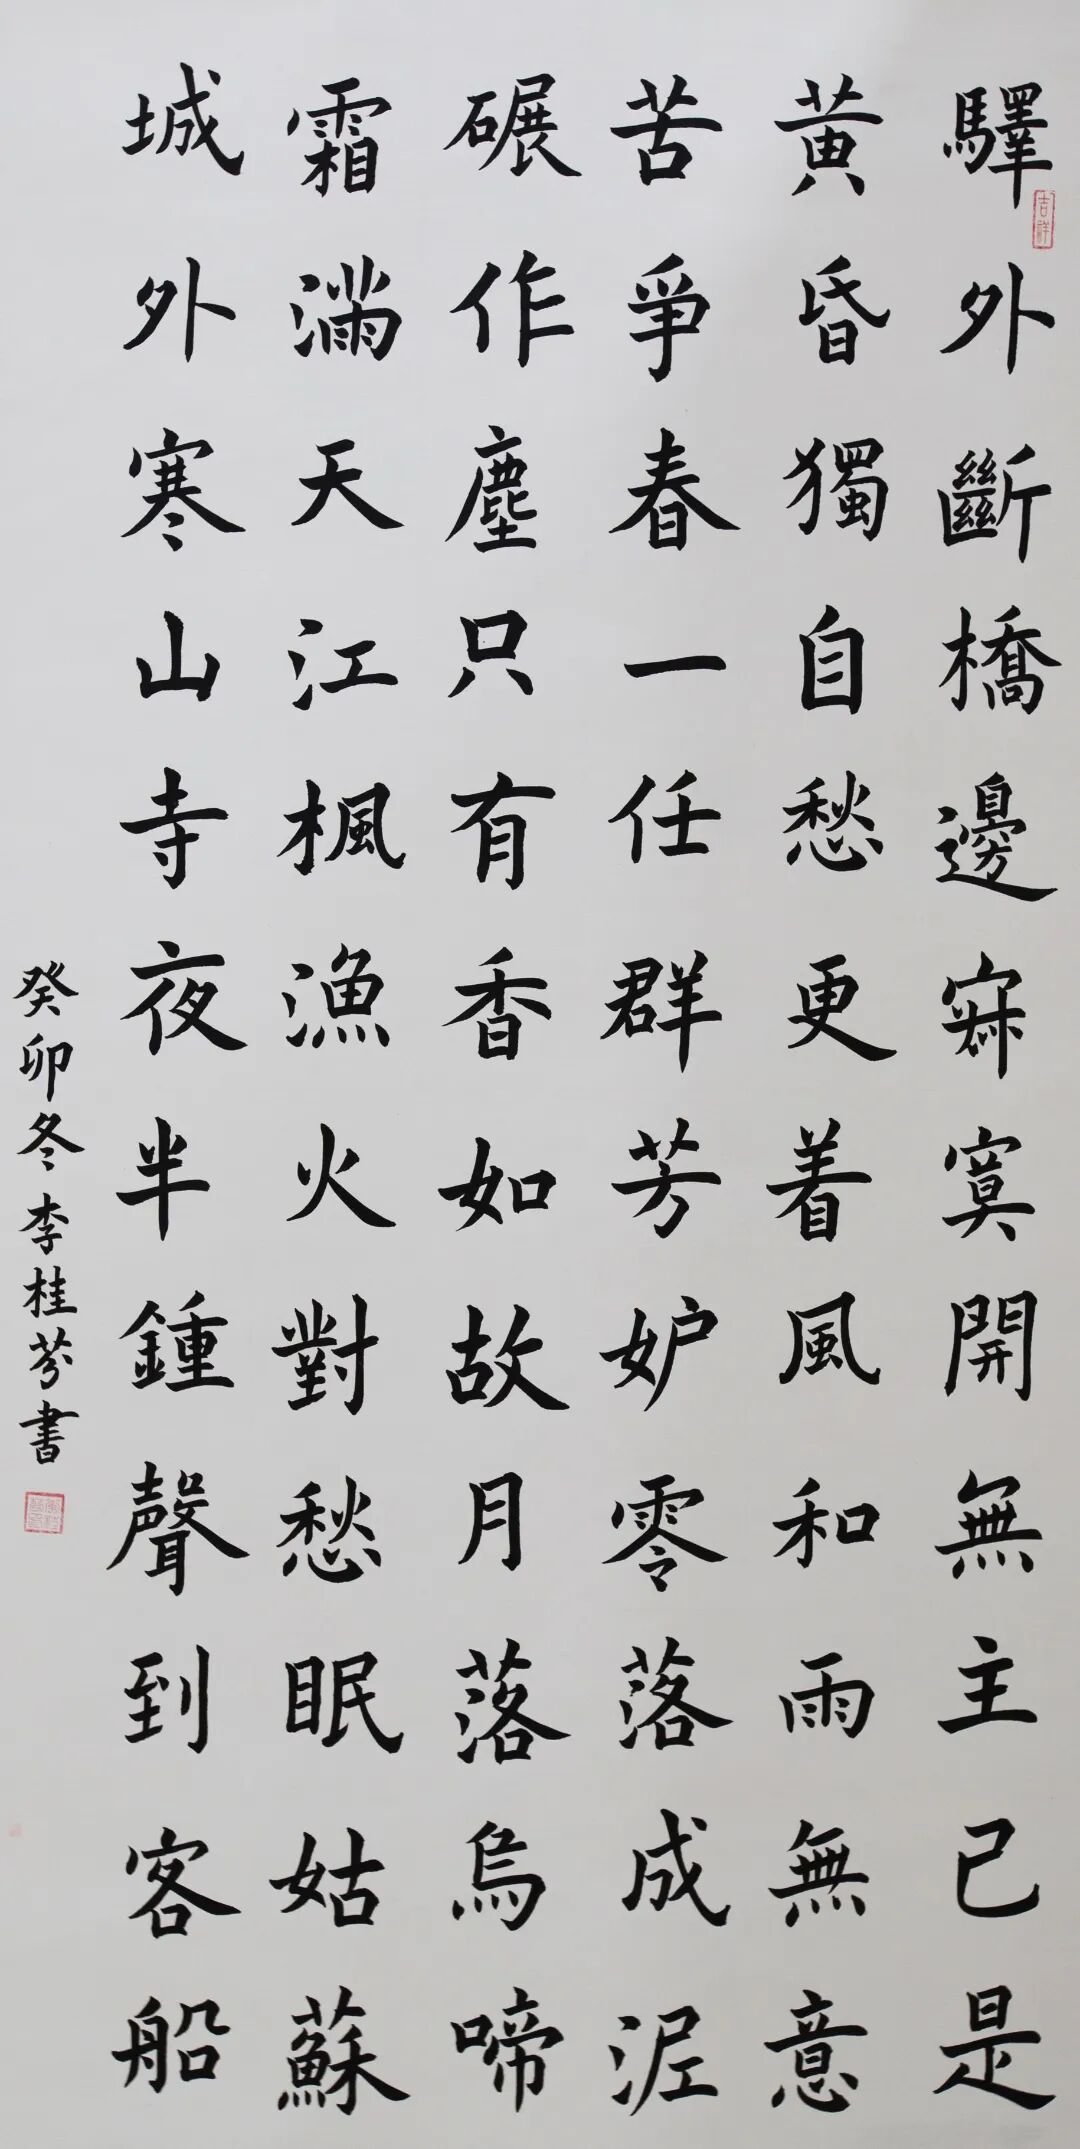 驛外斷橋邊寂寞開無主已是
黃昏獨自愁更着風和雨無意
苦爭春一任群芳妒零落成泥
碾作塵只有香如故月落烏啼
霜滿天江楓漁火對愁眠姑蘇
城外寒山寺夜半鍾聲到客船
癸卯冬李桂芬書
吉祥